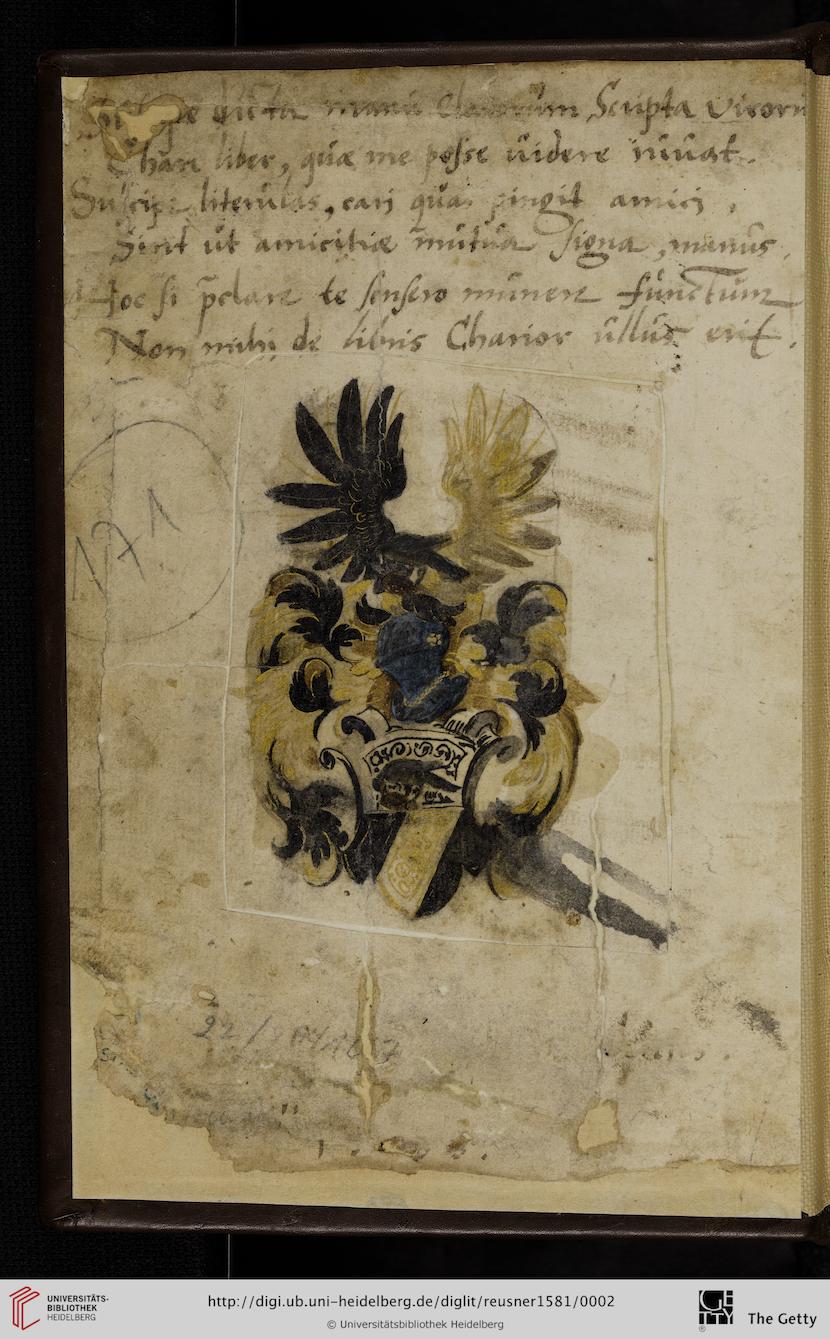 dicta manu Clarorum Scripta Viroru
Chare liber, quæ me posse videre iuuat.
Suscipe literulas, cari quas pingit amici,
Sint ut amicitiæ mutua signa, manus.
Hoc si p̄clare te sensero munere functum
Non mihi de libris Charior ullus erit.
171
22/
UNIVERSITÄTS-
BIBLIOTHEK
HEIDELBERG
http://digi.ub.uni-heidelberg.de/diglit/reusner1581/0002
© Universitätsbibliothek Heidelberg
GETTY
The Getty